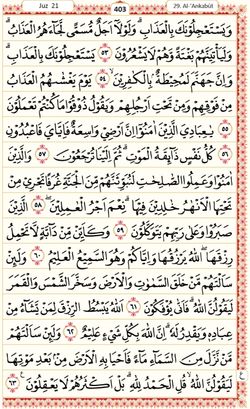 Juz 21
403
29. Al 'Ankabūt
وَيَسْتَعْجِلُوْنَكَ بِالْعَذَابِۗ وَلَوْلَآ اَجَلٌ مُّسَمًّى لَّجَاۤءَهُمُ الْعَذَابُۗ
وَلَيَأْتِيَنَّهُمْ بَغْتَةً وَّهُمْ لَا يَشْعُرُوْنَ ٥٣ يَسْتَعْجِلُوْنَكَ بِالْعَذَابِۗ
وَاِنَّ جَهَنَّمَ لَمُحِيْطَةٌۢ بِالْكٰفِرِيْنَ ٥٤ يَوْمَ يَغْشٰىهُمُ الْعَذَابُ
مِنْ فَوْقِهِمْ وَمِنْ تَحْتِ اَرْجُلِهِمْ وَيَقُوْلُ ذُوْقُوْا مَا كُنْتُمْ تَعْمَلُوْنَ
٥٥ يٰعِبَادِيَ الَّذِيْنَ اٰمَنُوْٓا اِنَّ اَرْضِيْ وَاسِعَةٌ فَاِيَّايَ فَاعْبُدُوْنِ
٥٦ كُلُّ نَفْسٍ ذَاۤىِٕقَةُ الْمَوْتِۗ ثُمَّ اِلَيْنَا تُرْجَعُوْنَ ٥٧ وَالَّذِيْنَ
اٰمَنُوْا وَعَمِلُوا الصّٰلِحٰتِ لَنُبَوِّئَنَّهُمْ مِّنَ الْجَنَّةِ غُرَفًا تَجْرِيْ مِنْ
تَحْتِهَا الْاَنْهٰرُ خٰلِدِيْنَ فِيْهَاۗ نِعْمَ اَجْرُ الْعٰمِلِيْنَۖ ٥٨ الَّذِيْنَ
صَبَرُوْا وَعَلٰى رَبِّهِمْ يَتَوَكَّلُوْنَ ٥٩ وَكَاَيِّنْ مِّنْ دَاۤبَّةٍ لَّا تَحْمِلُ
رِزْقَهَاۖ اللّٰهُ يَرْزُقُهَا وَاِيَّاكُمْ وَهُوَ السَّمِيْعُ الْعَلِيْمُ ٦٠ وَلَىِٕنْ
سَاَلْتَهُمْ مَّنْ خَلَقَ السَّمٰوٰتِ وَالْاَرْضَ وَسَخَّرَ الشَّمْسَ وَالْقَمَرَ
لَيَقُوْلُنَّ اللّٰهُۗ فَاَنّٰى يُؤْفَكُوْنَ ٦١ اَللّٰهُ يَبْسُطُ الرِّزْقَ لِمَنْ يَّشَاۤءُ مِنْ
عِبَادِهٖ وَيَقْدِرُ لَهٗۗ اِنَّ اللّٰهَ بِكُلِّ شَيْءٍ عَلِيْمٌ ٦٢ وَلَىِٕنْ سَاَلْتَهُمْ
مَّنْ نَّزَّلَ مِنَ السَّمَاۤءِ مَاۤءً فَاَحْيَا بِهِ الْاَرْضَ مِنْۢ بَعْدِ مَوْتِهَا
لَيَقُوْلُنَّ اللّٰهُۗ قُلِ الْحَمْدُ لِلّٰهِۗ بَلْ اَكْثَرُهُمْ لَا يَعْقِلُوْنَ ٦٣